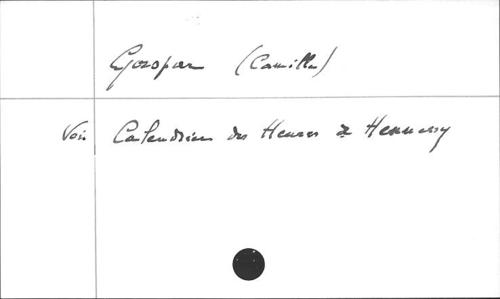 Gaspar (Camille)
Voir Calendrier des Heures de Hennessy